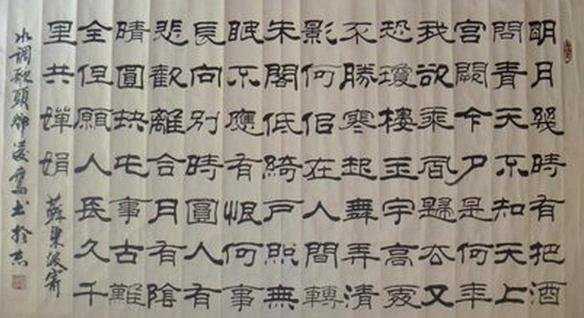 明月幾時有把酒
問青天不知天上
宮闕今夕是何年
我欲乘風歸去又
恐瓊樓玉宇高處
不勝寒起舞弄清
影何佀在人間轉
朱閣低綺戶照無
眠不應有恨何事
長向別時圓人有
悲歡離合月有陰
晴圓缺此事古難
全但願人長久千
里共嬋娟 蘇東坡
水調歌頭 書於京